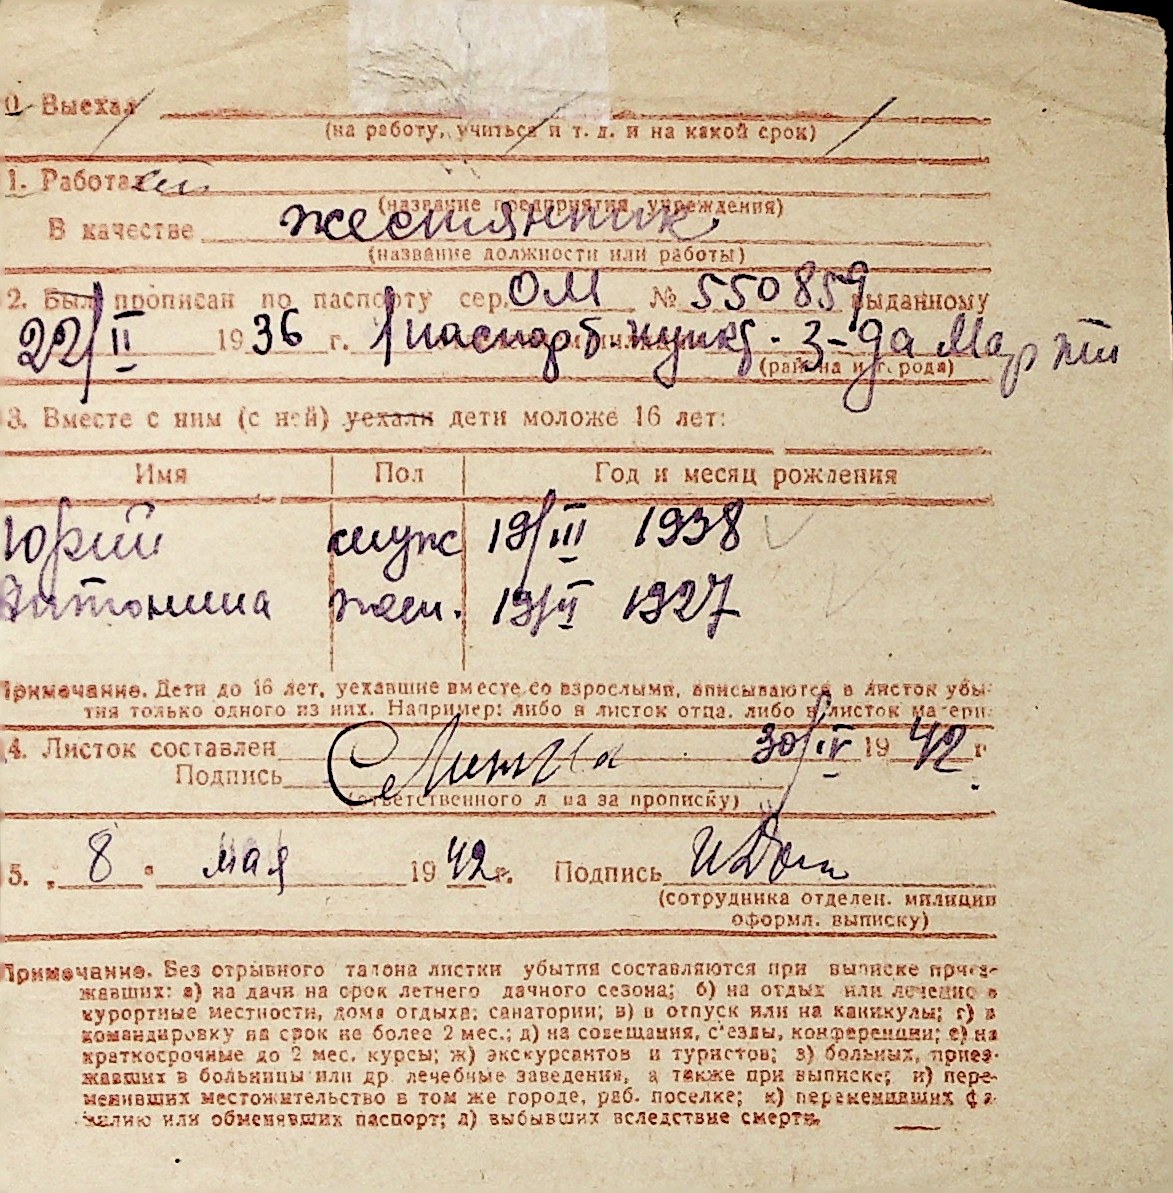 0. Выехал
(на работу, учиться и т. д. и на какой срок)
1. Работал
(название предприятия, учреждения)
В качестве жестянщик
(название должности или работы)
2. Был прописан по паспорту сер. ОМ № 550859 выданному
22/II 1936 г. 1 паспорт пункт. З-да Марти
(района и города)
3. Вместе с ним (с ней) уехали дети моложе 16 лет:
Имя Пол Год и месяц рождения
Юрий муж 19/III 1938
Антонина жен. 19/II 1927
Примечание. Дети до 16 лет, уехавшие вместе со взрослыми, вписываются в листок убы-
тия только одного из них. Например: либо в листок отца, либо в листок матери.
4. Листок составлен 30/IV 1942 г.
Подпись
(ответственного лица за прописку)
5. „ 8 " мая 1942 г. Подпись
(сотрудника отделен. милиции
оформл. выписку)
Примечание. Без отрывного талона листки убытия составляются при выписке приез-
жавших: а) на дачи на срок летнего дачного сезона; б) на отдых или лечение в
курортные местности, дома отдыха, санатории; в) в отпуск или на каникулы; г) в
командировку на срок не более 2 мес.; д) на совещания, с'езды, конференции; е) на
краткосрочные до 2 мес. курсы; ж) экскурсантов и туристов; з) больных, приез-
жавших в больницы или др. лечебные заведения, а также при выписке; и) пере-
менивших местожительство в том же городе, раб. поселке; к) переменивших фа-
милию или обменявших паспорт; л) выбывших вследствие смерти.